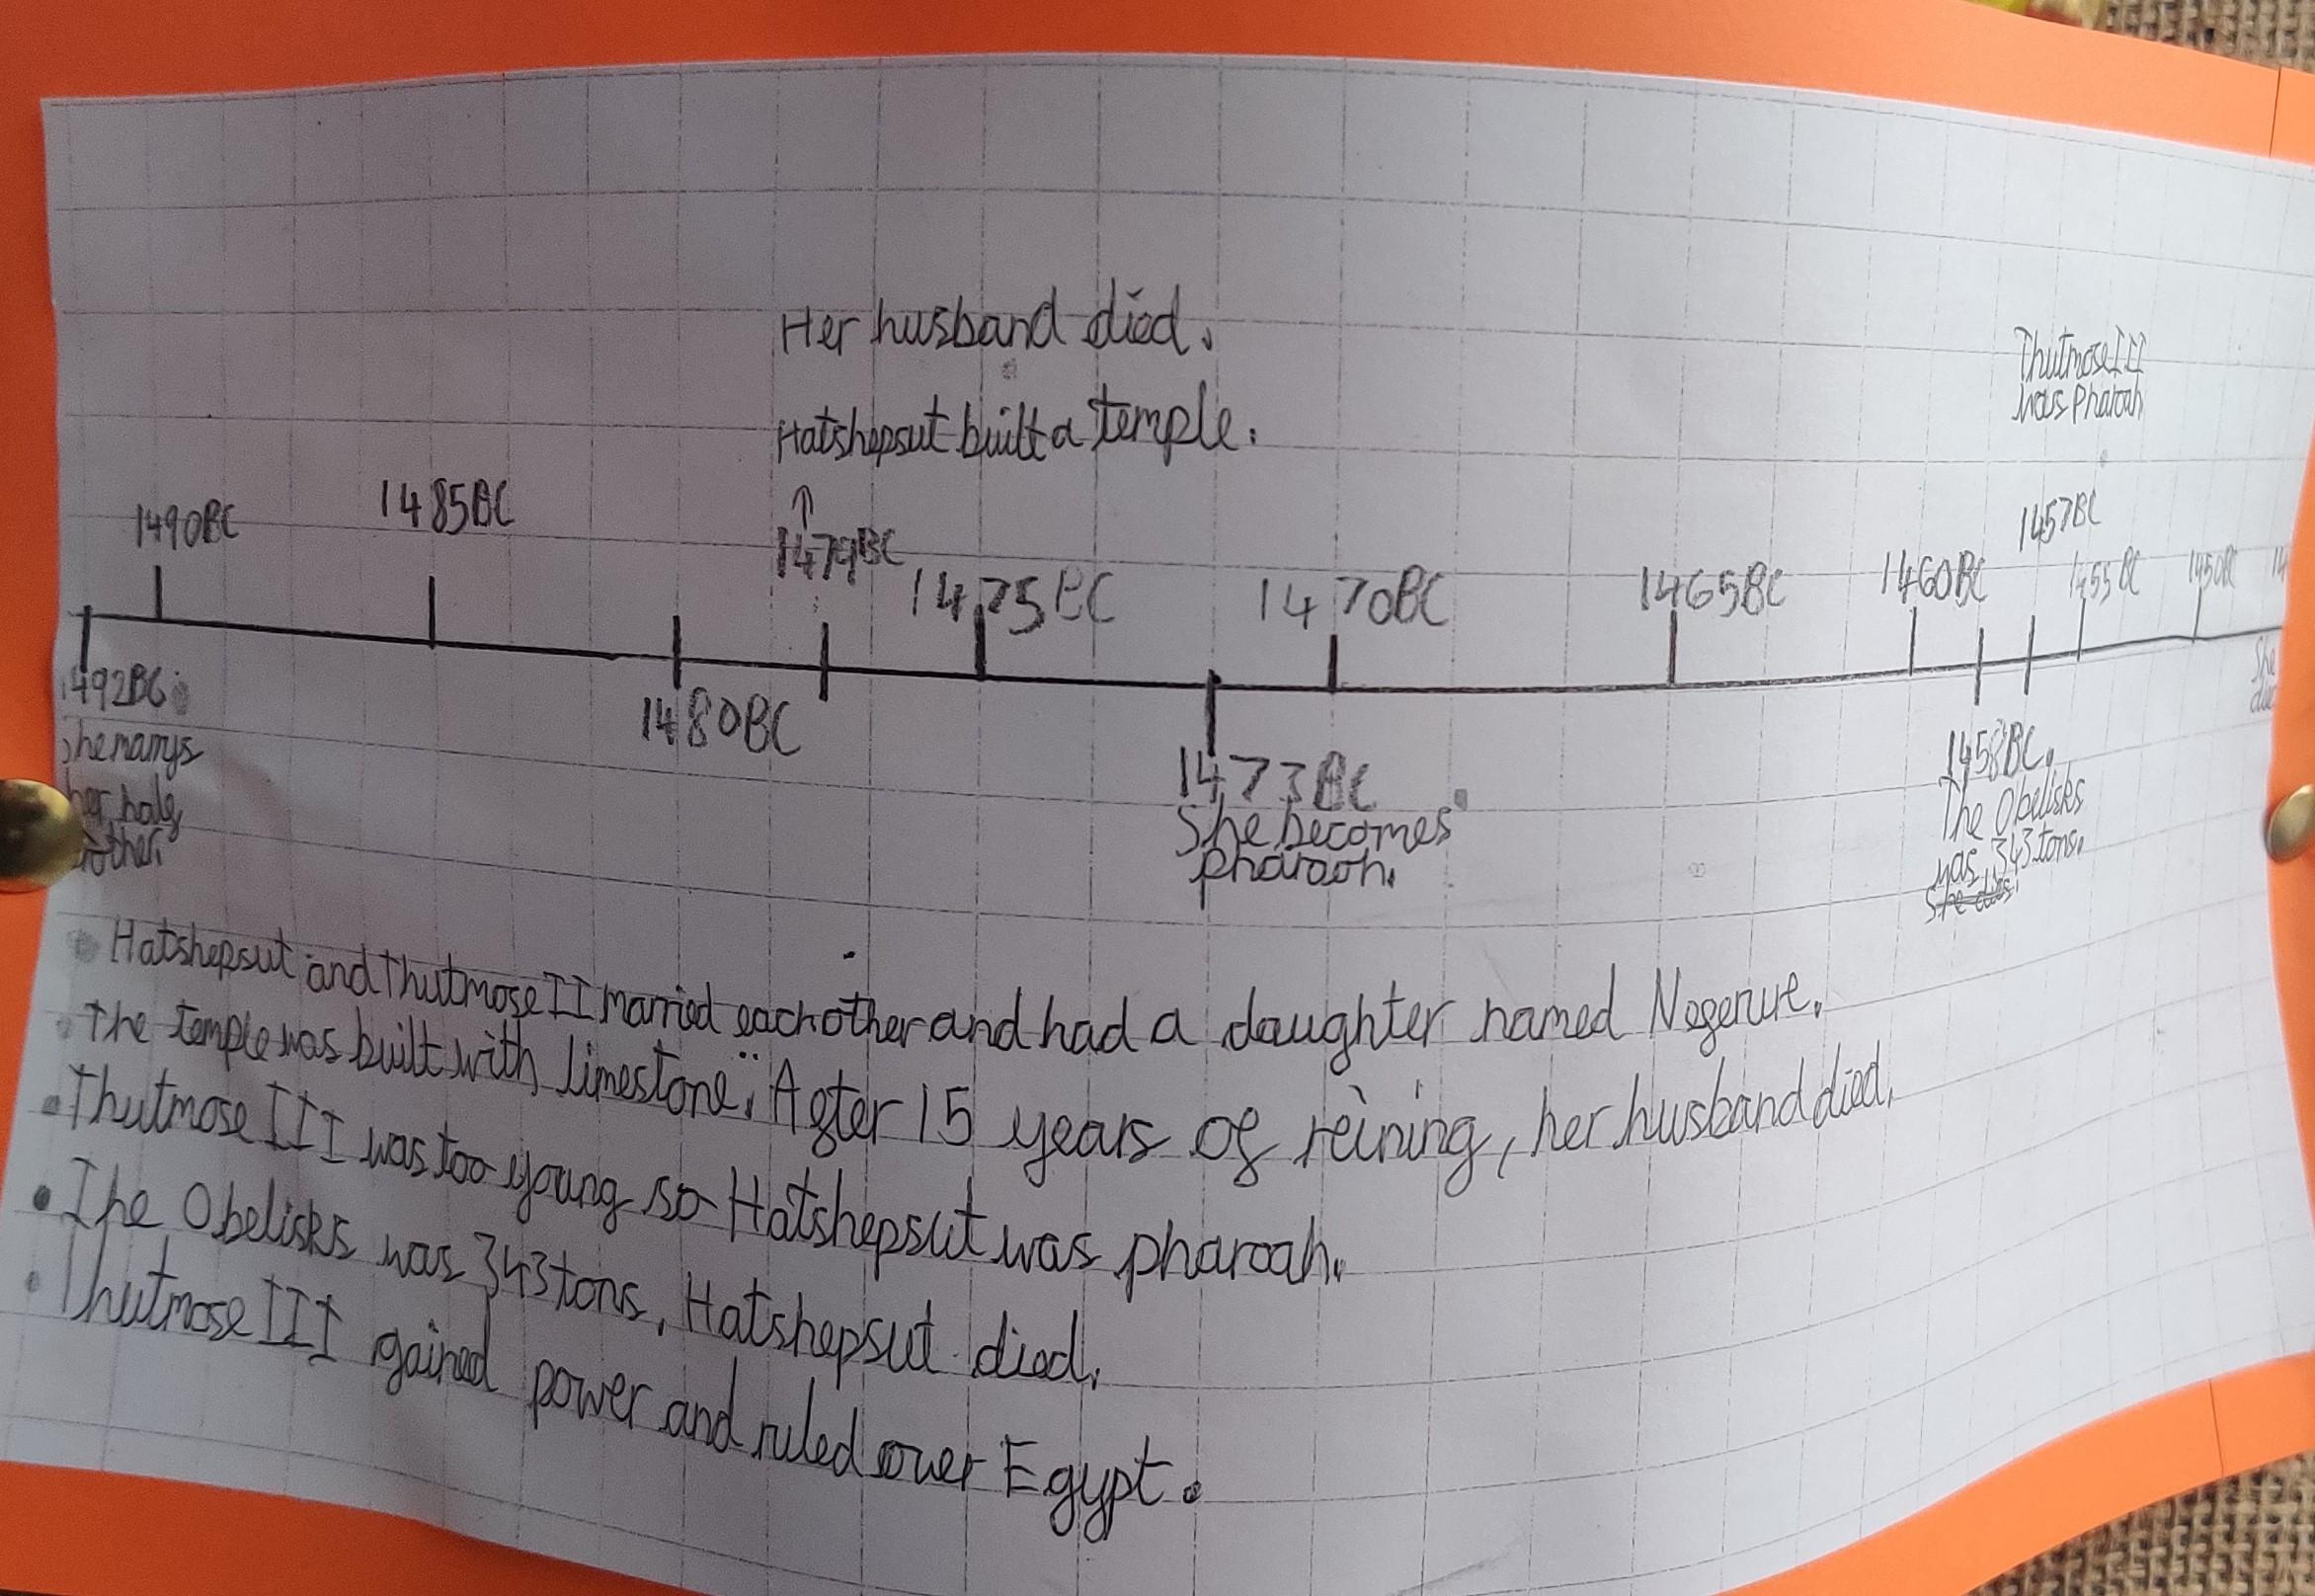 Her husband died.
Hatshepsut built a temple.
Thutmose III
was Pharoah
1490BC
1485BC
1479BC
1475BC
1470BC
1465BC
1460BC
1457BC
1455BC
1450BC
1492BC
She marrys
her half
brother.
1480BC
1473BC
She becomes
pharaoh.
1458BC.
The Obelisks
was 343 tons.
She dies.
She
• Hatshepsut and Thutmose II married each other and had a daughter named Neferure.
• The temple was built with limestone. After 15 years of reining, her husband died.
• Thutmose III was too young so Hatshepsut was pharoah.
• The Obelisks was 343 tons. Hatshepsut died.
• Thutmose III gained power and ruled over Egypt.